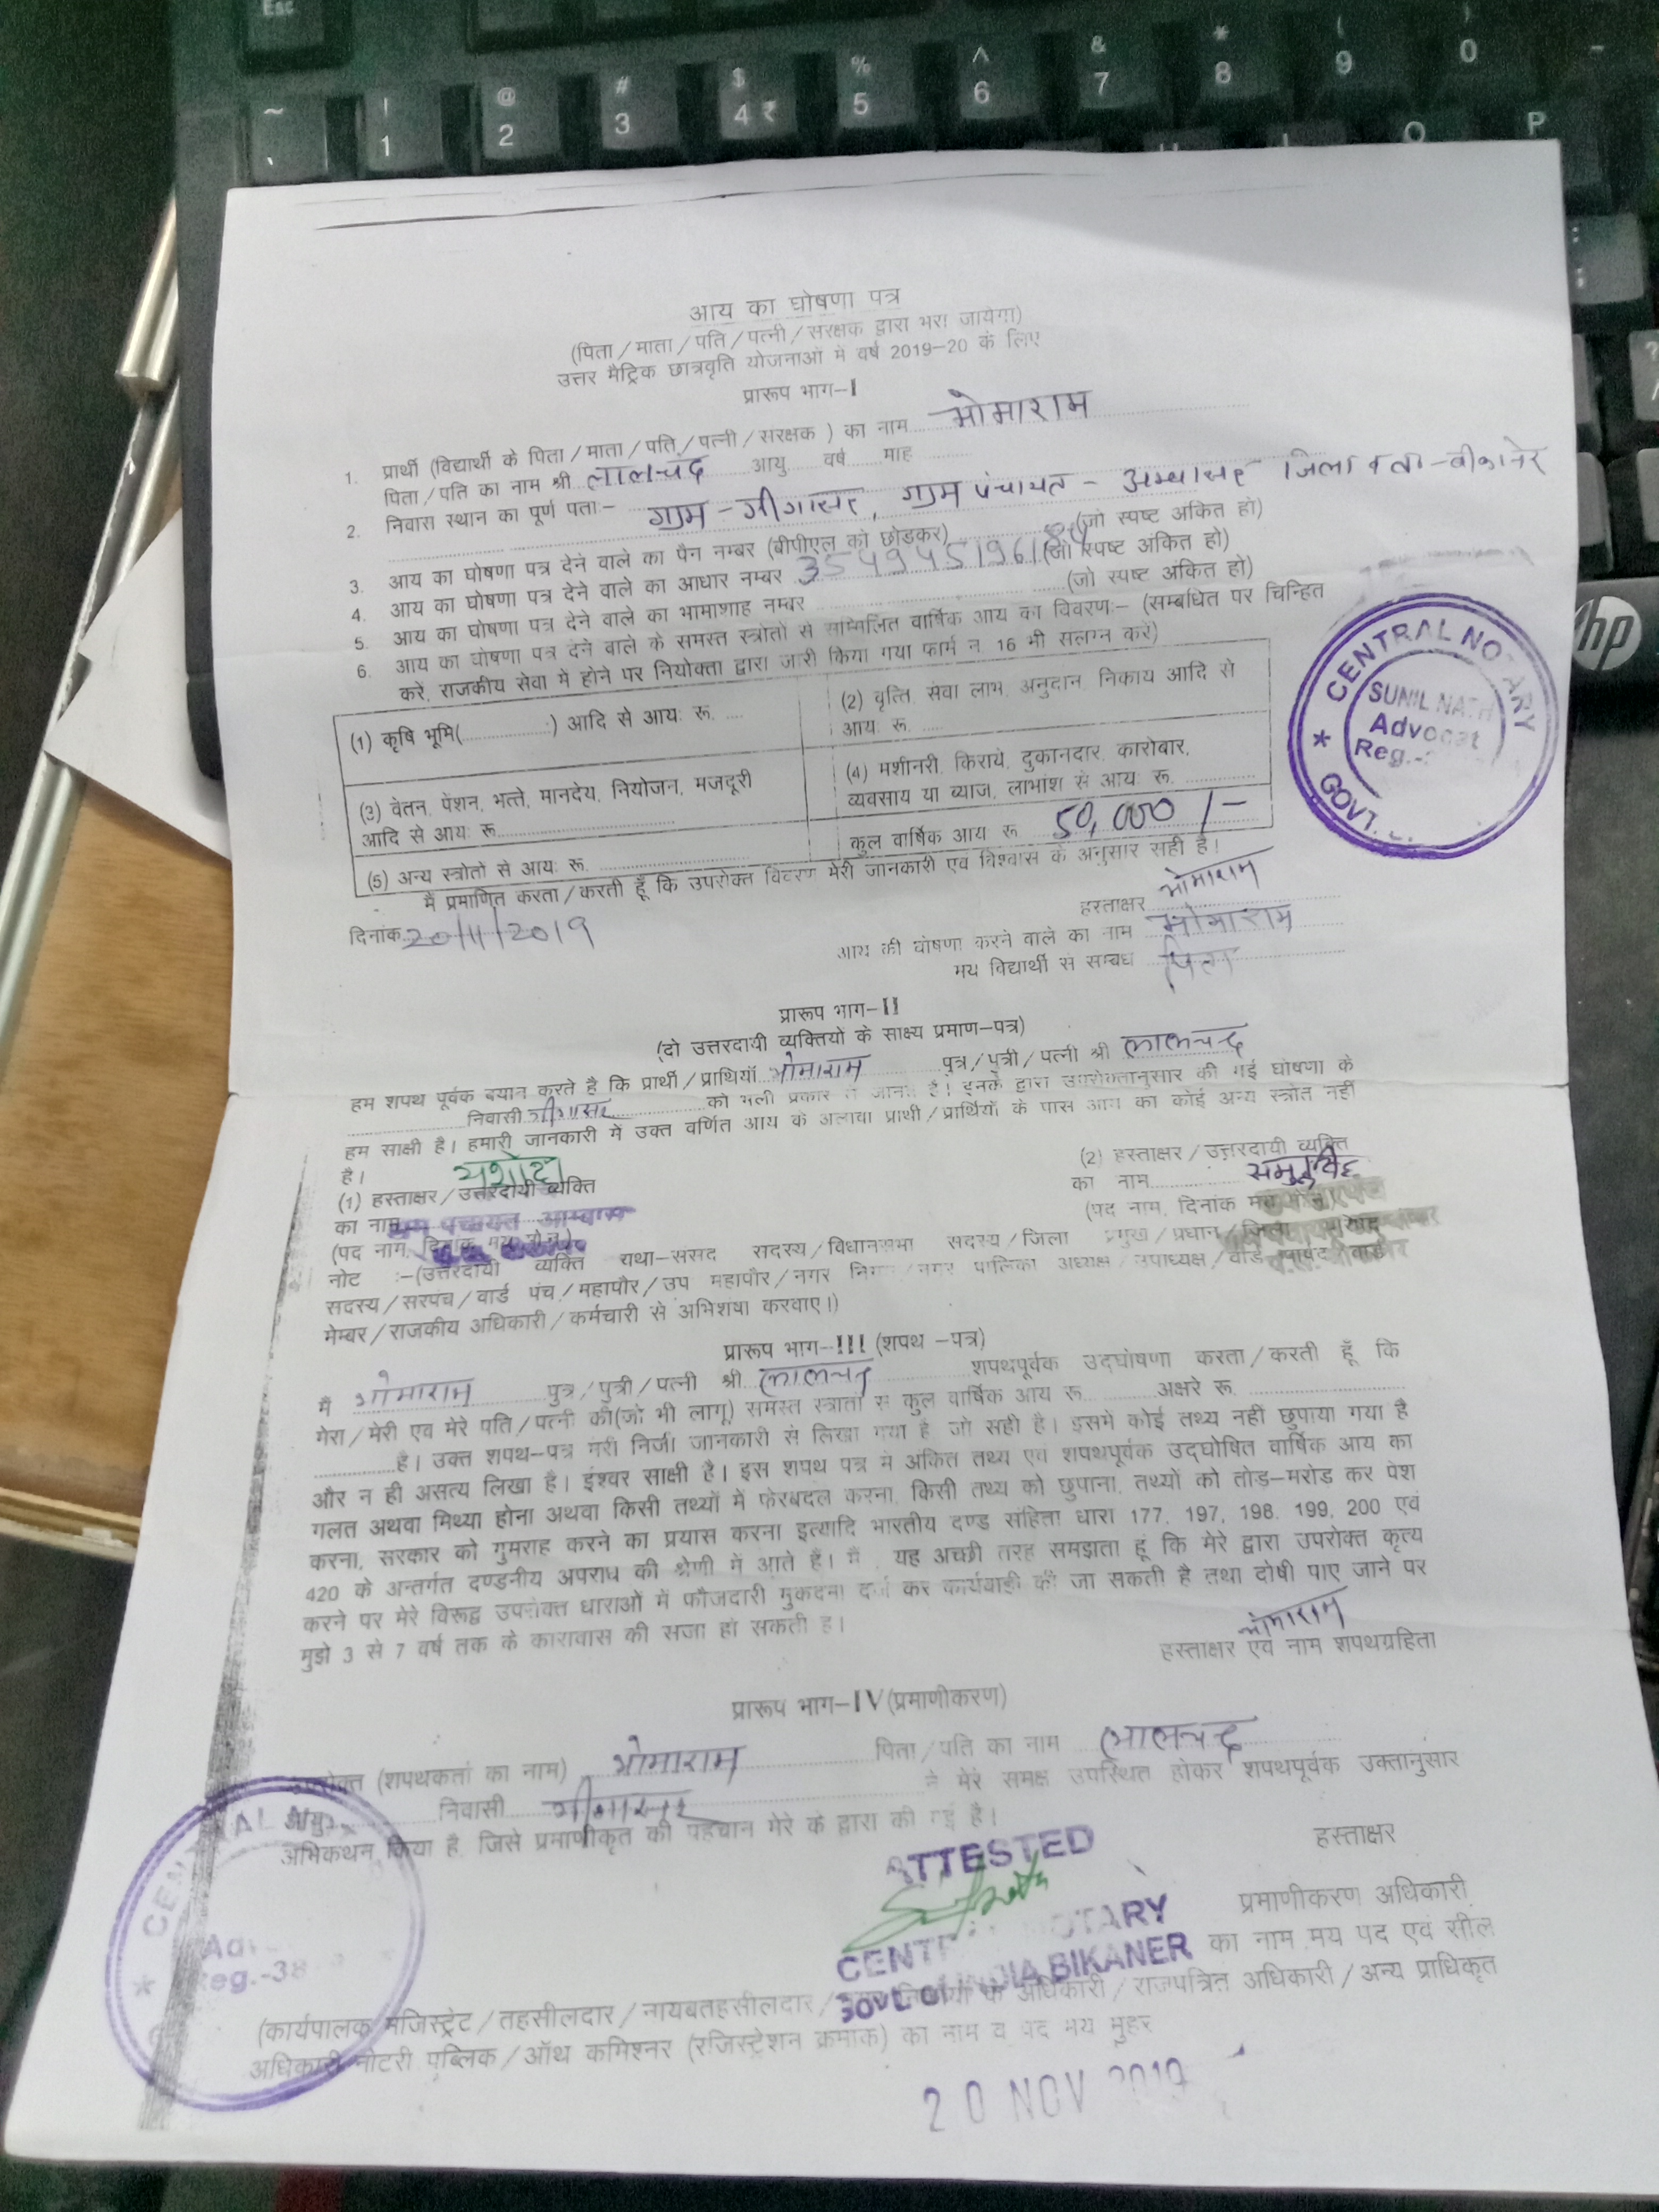 Esc
~ ! 1 @ 2 # 3 $ 4 ₹ % 5 ^ 6 & 7 * 8 ( 9 ) 0 -
O P
hp
आय का घोषणा पत्र
(पिता/माता/पति/पत्नी/सरक्षक द्वारा भरा जायेगा)
उत्तर मैट्रिक छात्रवृति योजनाओं में वर्ष 2019-20 के लिए
प्रारूप भाग-I
1. प्रार्थी (विद्यार्थी के पिता/माता/पति/पत्नी/सरक्षक) का नाम भोमाराम
पिता/पति का नाम श्री लालचंद आयु वर्ष माह
2. निवास स्थान का पूर्ण पता:- ग्राम - गीगासर, ग्राम पंचायत - अम्बासर जिला बीकानेर
3. आय का घोषणा पत्र देने वाले का पैन नम्बर (बीपीएल को छोडकर) (जो स्पष्ट अंकित हो)
4. आय का घोषणा पत्र देने वाले का आधार नम्बर (जो स्पष्ट अंकित हो)
5. आय का घोषणा पत्र देने वाले का भामाशाह नम्बर (जो स्पष्ट अंकित हो)
6. आय का घोषणा पत्र देने वाले के समस्त स्त्रोतो से सम्मिलित वार्षिक आय का विवरण:- (सम्बधित पर चिन्हित
करें, राजकीय सेवा में होने पर नियोक्ता द्वारा जारी किया गया फार्म न. 16 भी सलग्न करें)
(1) कृषि भूमि( ) आदि से आय: रू. (2) वृत्ति, सेवा लाभ, अनुदान, निकाय आदि से
आय: रू.
(3) वेतन, पेंशन, भत्ते, मानदेय, नियोजन, मजदूरी
आदि से आय: रू.
(4) मशीनरी, किराये, दुकानदार, कारोबार,
व्यवसाय या ब्याज, लाभांश से आय: रू.
(5) अन्य स्त्रोतो से आय: रू. कुल वार्षिक आय: रू. 50,000/-
CENTRAL NOTARY
SUNIL NATH
Advocat
Reg.-
GOVT.
मैं प्रमाणित करता/करती हूँ कि उपरोक्त विवरण मेरी जानकारी एवं विश्वास के अनुसार सही है।
दिनांक 20/11/2019
हस्ताक्षर भोमाराम
आय की घोषणा करने वाले का नाम भोमाराम
मय विद्यार्थी से सम्बध पिता
प्रारूप भाग-II
(दो उत्तरदायी व्यक्तियो के साक्ष्य प्रमाण-पत्र)
हम शपथ पूर्वक बयान करते है कि प्रार्थी/प्रार्थियॉ भोमाराम पुत्र/पुत्री/पत्नी श्री लालचंद
निवासी गीगासर को भली प्रकार से जानते है। इनके द्वारा उपरोक्तानुसार की गई घोषणा के
हम साक्षी है। हमारी जानकारी में उक्त वर्णित आय के अलावा प्रार्थी/प्रार्थियॉ के पास आय का कोई अन्य स्त्रोत नहीं
है।
यशोदा
(1) हस्ताक्षर/उत्तरदायी व्यक्ति
का नाम
(पद नाम, दिनांक मय सील)
(2) हस्ताक्षर/उत्तरदायी व्यक्ति
का नाम
(पद नाम, दिनांक मय सील)
नोट :-(उत्तरदायी व्यक्ति यथा-ससद सदस्य/विधानसभा सदस्य/जिला प्रमुख/प्रधान/जिला परिषद
सदस्य/सरपंच/वार्ड पंच/महापौर/उप महापौर/नगर निगम/नगर पालिका अध्यक्ष/उपाध्यक्ष/वार्ड पार्षद/वार्ड
मेम्बर/राजकीय अधिकारी/कर्मचारी से अभिशषा करवाए।)
प्रारूप भाग-III (शपथ -पत्र)
मैं भोमाराम पुत्र/पुत्री/पत्नी श्री लालचंद शपथपूर्वक उदघोषणा करता/करती हूँ कि
मेरा/मेरी एवं मेरे पति/पत्नी की(जो भी लागू) समस्त स्त्रोतो से कुल वार्षिक आय रू. अक्षरे रू.
है। उक्त शपथ-पत्र मेरी निजी जानकारी से लिखा गया है, जो सही है। इसमें कोई तथ्य नहीं छुपाया गया है
और न ही असत्य लिखा है। ईश्वर साक्षी है। इस शपथ पत्र मे अंकित तथ्य एवं शपथपूर्वक उद्घोषित वार्षिक आय का
गलत अथवा मिथ्या होना अथवा किसी तथ्यों में फेरबदल करना, किसी तथ्य को छुपाना, तथ्यों को तोड-मरोड कर पेश
करना, सरकार को गुमराह करने का प्रयास करना इत्यादि भारतीय दण्ड संहिता धारा 177, 197, 198, 199, 200 एवं
420 के अन्तर्गत दण्डनीय अपराध की श्रेणी में आते है। मैं, यह अच्छी तरह समझता हूं कि मेरे द्वारा उपरोक्त कृत्य
करने पर मेरे विरूद्व उपरोक्त धाराओं में फौजदारी मुकदमा दर्ज कर कार्यवाही की जा सकती है तथा दोषी पाए जाने पर
मुझे 3 से 7 वर्ष तक के कारावास की सजा हो सकती है।
भोमाराम
हस्ताक्षर एवं नाम शपथग्रहिता
प्रारूप भाग-IV(प्रमाणीकरण)
(शपथकर्ता का नाम) भोमाराम पिता/पति का नाम लालचंद
निवासी गीगासर ने मेरे समक्ष उपस्थित होकर शपथपूर्वक उक्तानुसार
अभिकथन किया है, जिसे प्रमाणीकृत की पहचान मेरे के द्वारा की गई है।
ATTESTED
हस्ताक्षर
प्रमाणीकरण अधिकारी
का नाम मय पद एवं सील
NOTARY
INDIA BIKANER
Reg.-38
(कार्यपालक मजिस्ट्रेट/तहसीलदार/नायबतहसीलदार/ के अधिकारी/राजपत्रित अधिकारी/अन्य प्राधिकृत
अधिकारी नोटरी पब्लिक/ऑथ कमिश्नर (रजिस्ट्रेशन क्रमाक) का नाम व पद मय मुहर
20 NOV 2019